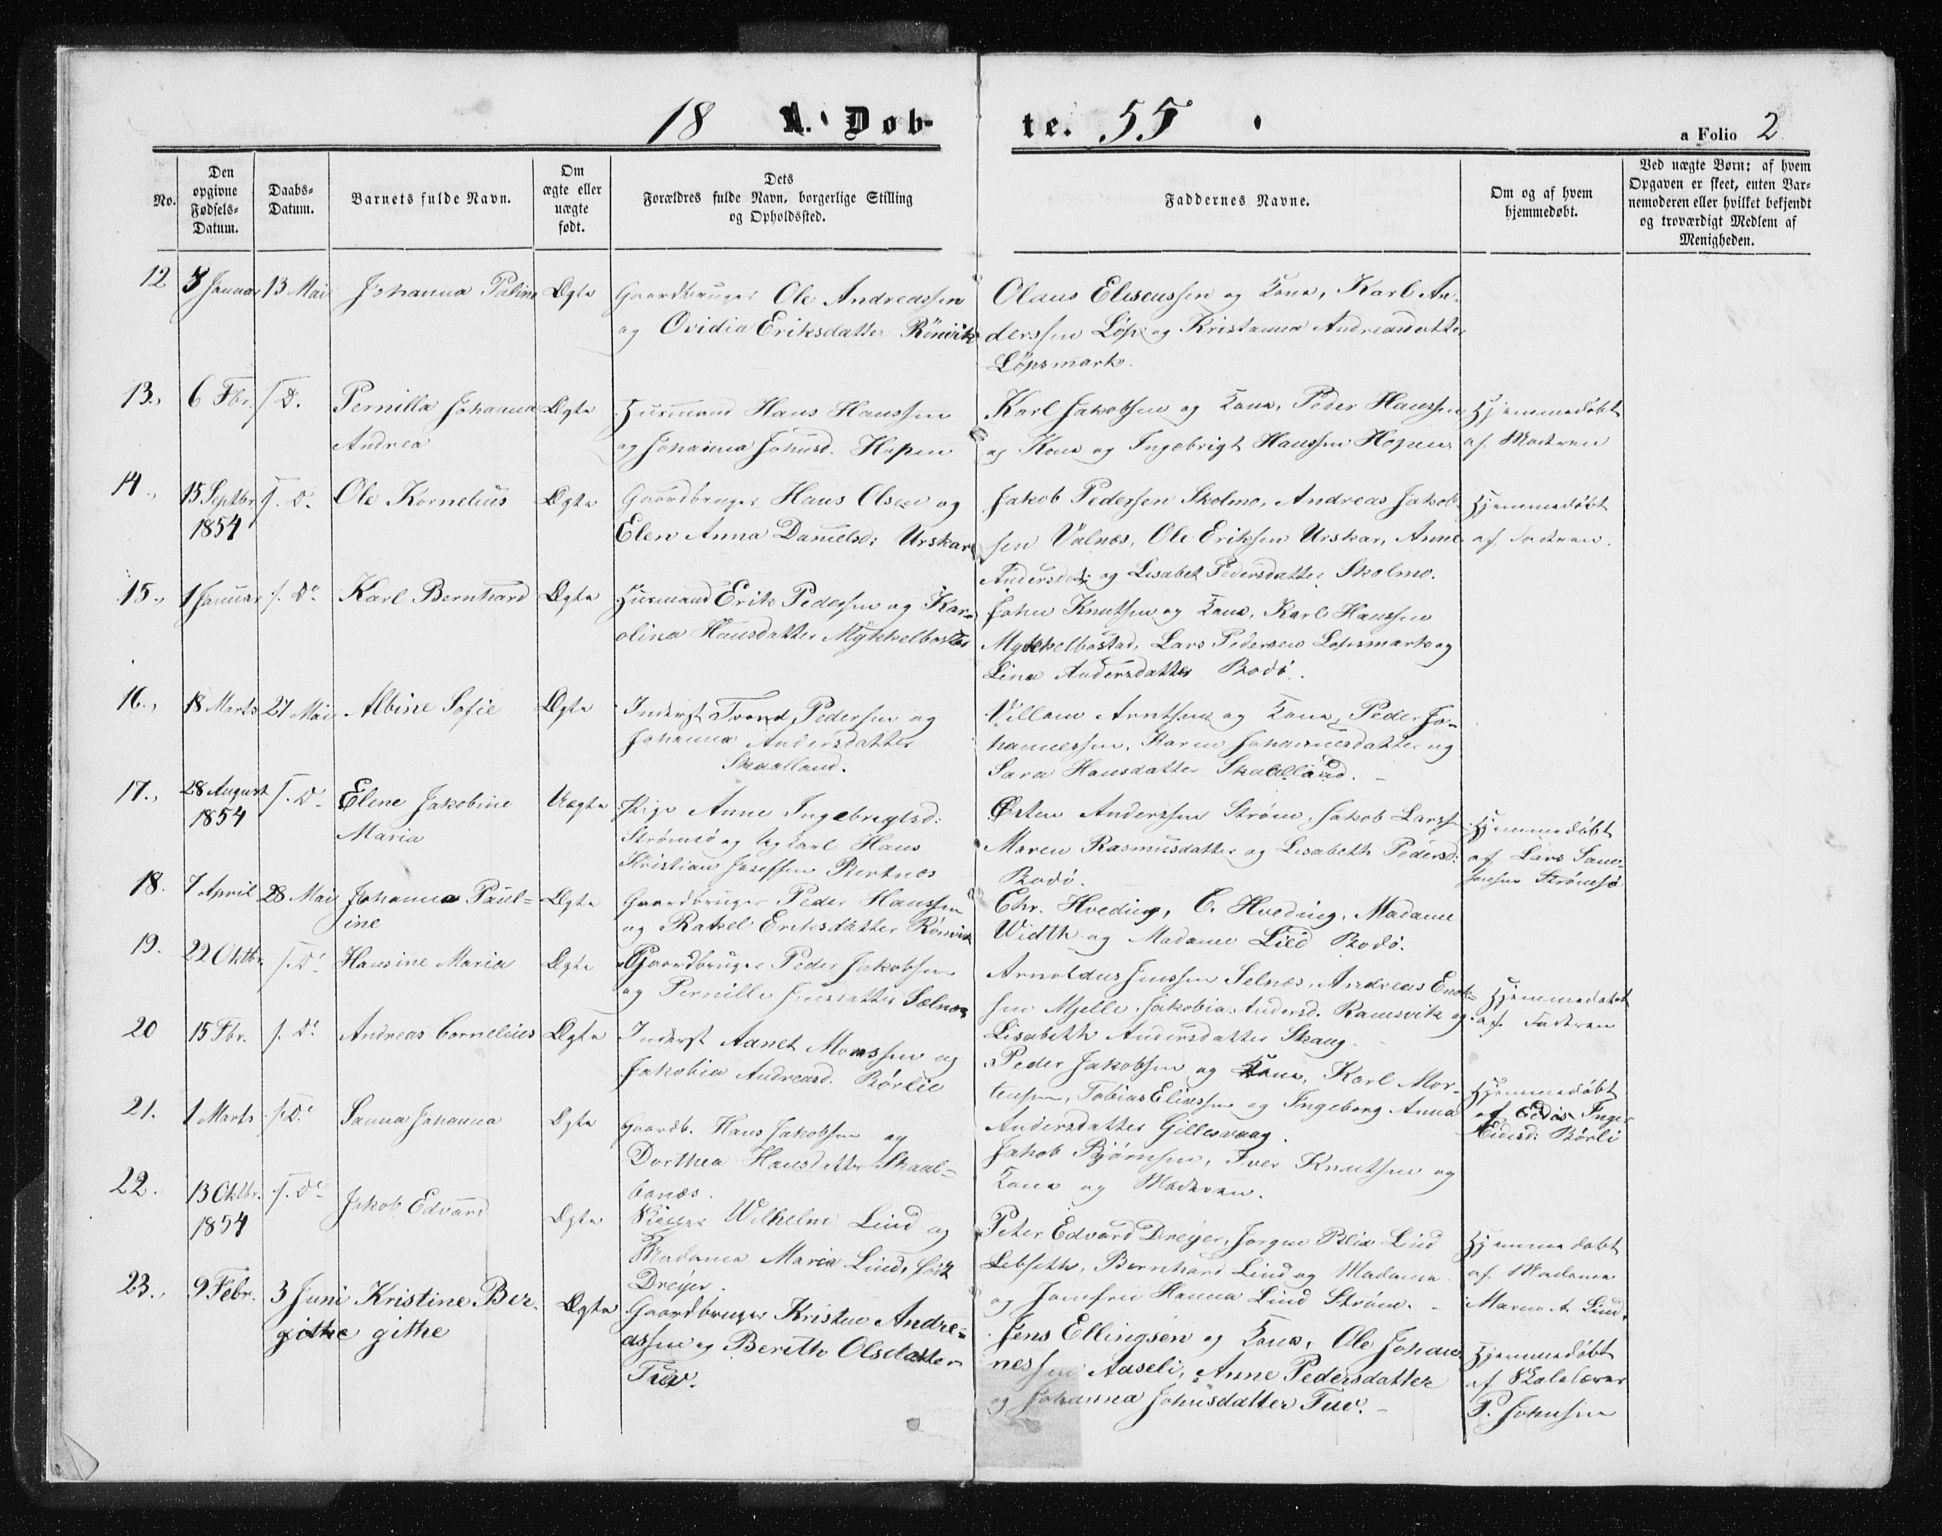 18 A. Døb-
te. 55
a Folio 2
No.
Den opgivne Fødsels-Datum.
Daabs-Datum.
Barnets fulde Navn.
Om ægte eller uægte født.
Dets Forældres fulde Navn, borgerlige Stilling og Opholdssted.
Faddernes Navne.
Om og af hvem hjemmedøbt.
Ved uægte Børn: af hvem Opgaven er skeet, enten Barnemoderen eller hvilket bekjendt og troværdigt Medlem af Menigheden.
12 Januar 13 Mai Johanna Ægte Gaardbruger Ole Andreassen
og Ovidia Eriksdatter Rönvik
Olaus Eliseussen og Kone, Karl An-
derssen Löp og Kristianna Andreasdatter
Löpsmark.
13., 6 Fbr. s. D. Pernilla Johanna Ægte Huusmand Hans Hanssen
Andrea og Johanna Johnsd. Hopen
Karl Jakobsen og Kone, Peder Hanssen Hjemmedøbt
og Kone og Ingebrigt Hanssen Hopen. af Moderen
14., 15 Septbr s. D. Ole Kornelius Ægte Gaardbruger Hans Olsen og
1854 Elen Anna Danielsd: Urskar
Jakob Pedersen Skolmo, Andreas Jakob- Hjemmedøbt
sen Valnes, Ole Eriksen Urskar, Anne af Faderen.
Andersdtr og Lisabet Pedersdatter Skolmo.
15., 1 Januar s. D. Karl Bernhard Ægte Huusmand Erik Pedersen og Kar-
olina Hansdatter Mykkelbostad
John Knutsen og Kone, Karl Hanssen
Mykkelbostad, Lars Pedersen Lopsmark og
Lina Andersdatter Bodö.
16., 18 Marts 27 Mai Albine Sofie Ægte Inderst Trond Pedersen og
Johanna Andersdatter
Skaalland.
Villam Arntsen og Kone, Peder Jo-
hannessen, Karen Johannesdatter og
Sara Hansdatter Skaalland.
17., 28 August s. D. Elene Jakobine Uægte Pige Anne Ingebrigtsd:
1854 Maria Strömsö og Ungkarl Hans
Kristian Joseffsen Bertnes
Østen Anderssen Ström, Jakob Larss. Hjemmedøbt
Maren Rasmusdatter og Lisabeth Pedersd. af Lars
Bodö. Strömsö
18. 7 April 28 Mai Johanna Paul- Ægte Gaardbruger Peder Hanssen
ine og Rakel Eriksdatter Rönvik
Chr. Hveding, C. Hveding, Madame
Width og Madame Lied Bodö.
19. 22 Oktbr. s. D. Hansine Maria Ægte Gaardbruger Peder Jakobsen
og Pernille Jensdatter Sælnes
Arnoldus Jenssen Selnes, Andreas Enok- Hjemmedøbt
sen Mjelle, Jakobia Andersd. Ramsvik og af Faderen
Lisabeth Andersdatter Skaug.
20 15 Fbr. s. D. Andreas Cornelius Ægte Inderst Adnet Monssen og
Jakobia Andreasd. Börlie
Peder Jakobsen og Kone, Karl Mor- Hjemmedøbt
tensen, Tobias Eliassen og Ingeborg Anna af
Andersdatter Gillesvaag. Börli
21. 1 Marts s. D. Sanna Johanna Ægte Gaardb. Hans Jakobsen og
Dorthea Hansdatter Skaal-
bones.
Jakob Björnsen, Iver Knutsen og
Kone og Moderen.
22. 13 Oktbr. s. D. Jakob Edvard Ægte Wilhelm Lind og
1854 Madama Maria Lind, född
Dreyer.
Peter Edvard Dreyer, Jörgen Blix Lind Hjemmedøbt
Løbseth, Bernhard Lind og Madame af Madame
og Jomfru Hanna Lind Ström. Lind.
23., 9 Febr. 3 Juni Kristine Ber- Ægte Gaardbruger Kristen Andre-
githe githe assen og Berith Olsdatter
Tuv.
Jens Ellingsen og Kone, Ole Johan- Hjemmedøbt
nessen Aaseli, Anne Pedersdatter af Skolelærer
og Johanna Johnsdatter Tuv. P. Johnsen